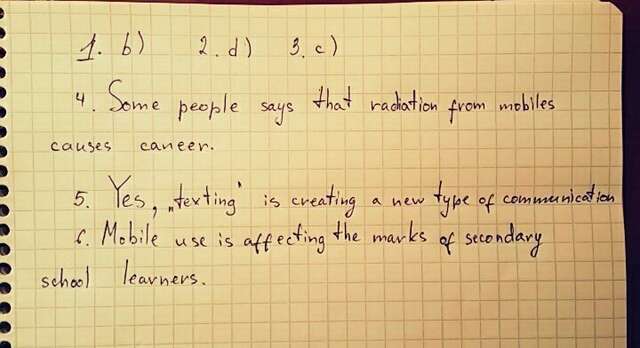 1. b) 2. d) 3. c)
4. Some people says that radiation from mobiles
causes caneer.
5. Yes, „texting‟ is creating a new type of communication
6. Mobile use is affecting the marks of secondary
school learners.